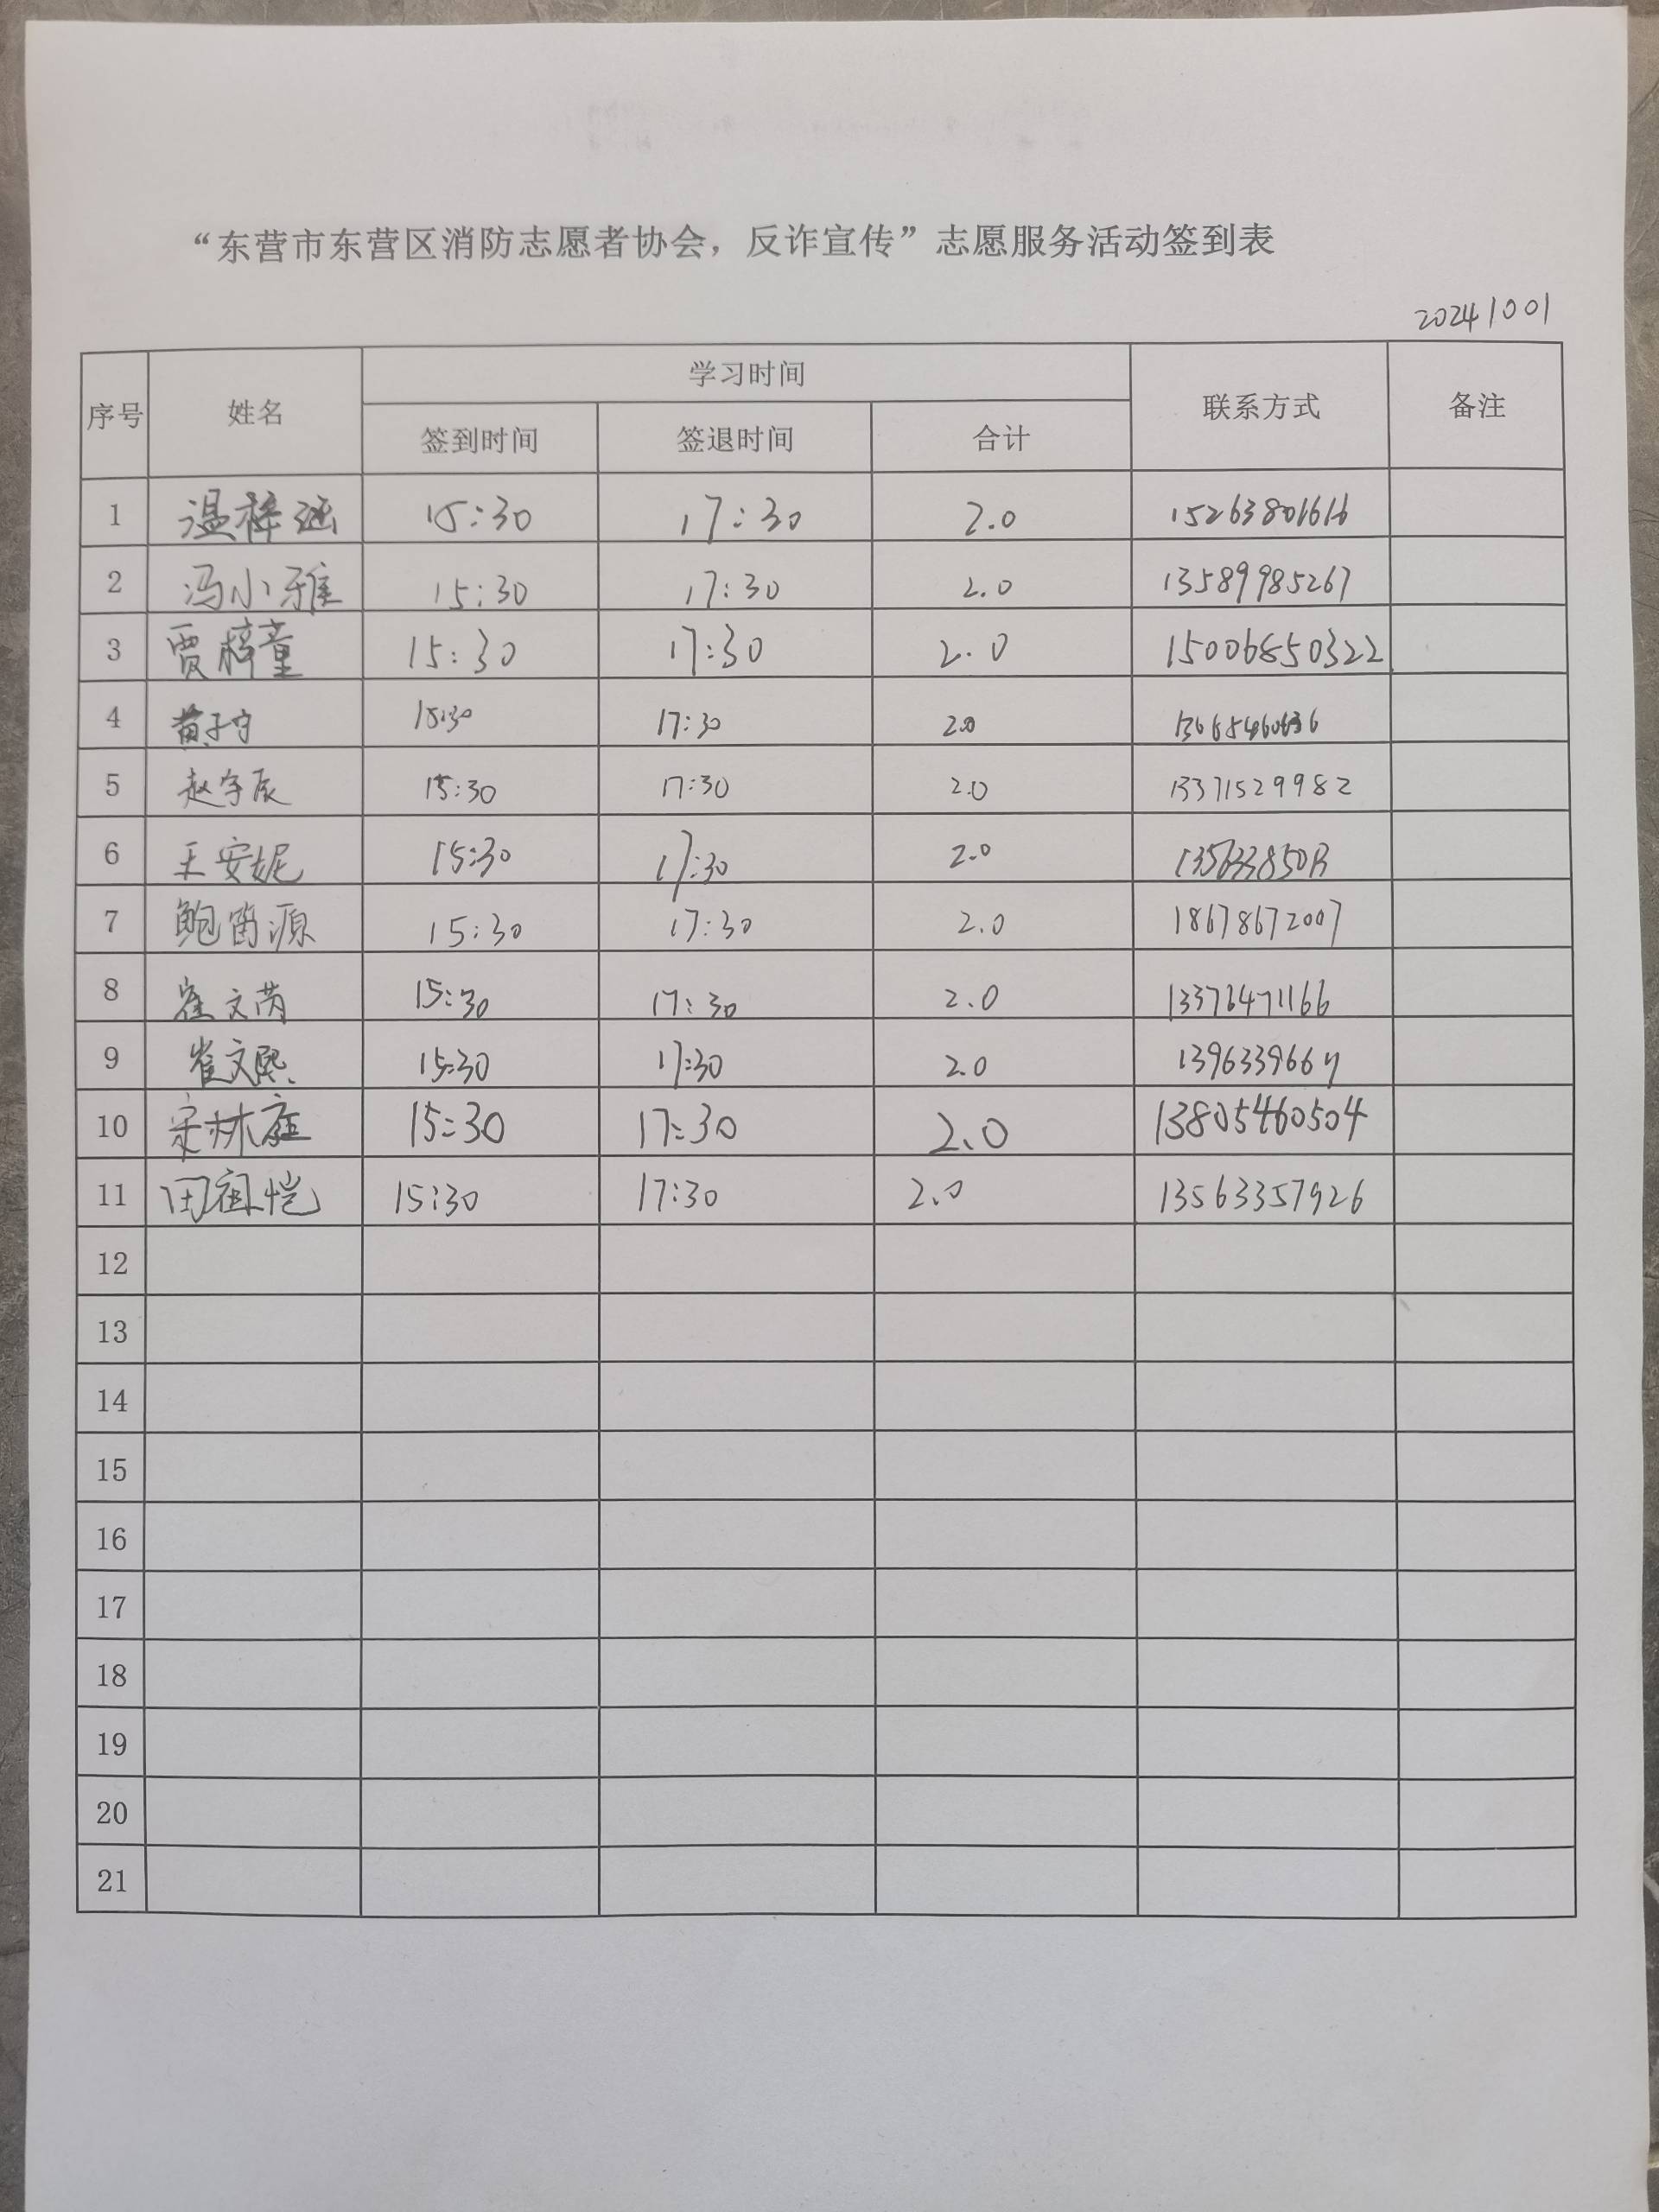 “东营市东营区消防志愿者协会，反诈宣传”志愿服务活动签到表
20241001
序号 姓名 学习时间 联系方式 备注
签到时间 签退时间 合计
1 温梓涵 15:30 17:30 2.0 15263801616
2 冯小雅 15:30 17:30 2.0 13589985267
3 贾梓童 15:30 17:30 2.0 15006850322
4 黄子宁 15:30 17:30 2.0
5 赵宇辰 15:30 17:30 2.0 13371529982
6 王安妮 15:30 17:30 2.0
7 鲍笛源 15:30 17:30 2.0 18678672007
8 崔文芮 15:30 17:30 2.0 13376471166
9 崔文熙 15:30 17:30 2.0
10 宋林庭 15:30 17:30 2.0 13805460504
11 田祖恺 15:30 17:30 2.0 13563357926
12
13
14
15
16
17
18
19
20
21